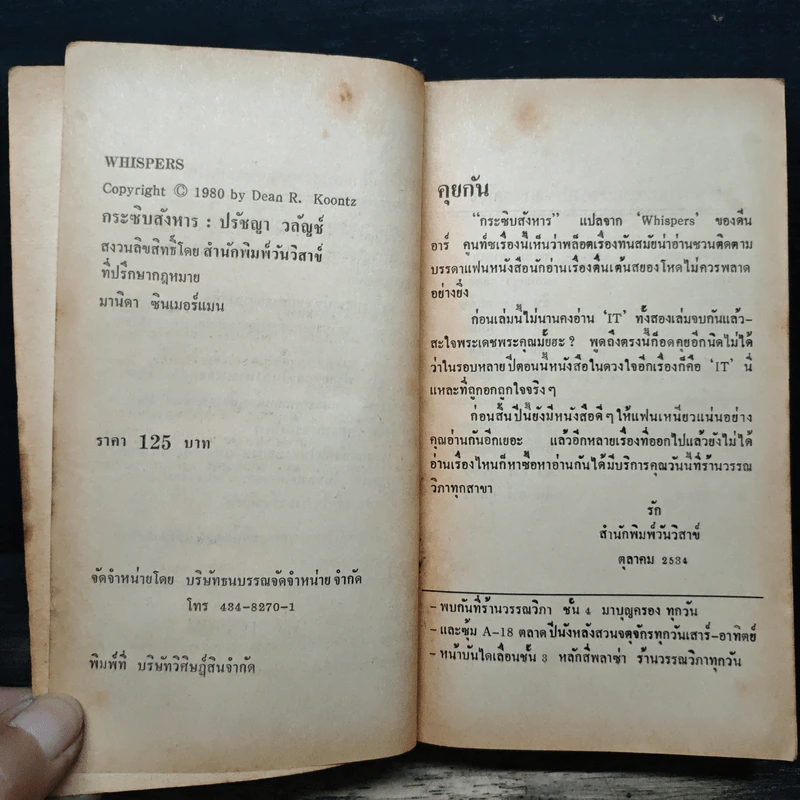 WHISPERS
Copyright © 1980 by Dean R. Koontz
กระซิบสังหาร : ปรัชญา วลัญช์
สงวนลิขสิทธิ์โดย สำนักพิมพ์วันวิสาข์
ที่ปรึกษากฎหมาย
มานิดา ซินเมอร์แมน
ราคา 125 บาท
จัดจำหน่ายโดย บริษัทธนบรรณจัดจำหน่าย จำกัด
โทร 434-8270-1
พิมพ์ที่ บริษัทวิศิษฎ์สินจำกัด
คุยกัน
“กระซิบสังหาร” แปลจาก ‘Whispers’ ของดีน
อาร์ คูนท์ซเรื่องนี้เห็นว่าพล็อตเรื่องทันสมัยน่าอ่านชวนติดตาม
บรรดาแฟนหนังสือนักอ่านเรื่องตื่นเต้นสยองโหดไม่ควรพลาด
อย่างยิ่ง
ก่อนเล่มนี้ไม่นานคงอ่าน ‘IT’ ทั้งสองเล่มจบกันแล้ว-
สะใจพระเดชพระคุณมั้ยฮะ? พูดถึงตรงนี้ก็อดคุยอีกนิดไม่ได้
ว่าในรอบหลายปีตอนนี้หนังสือในดวงใจอีกเรื่องก็คือ ‘IT’ นี่
แหละที่ถูกอกถูกใจจริงๆ
ก่อนสิ้นปีนี้ยังมีหนังสือดีๆ ให้แฟนเหนียวแน่นอย่าง
คุณอ่านกันอีกเยอะ แล้วอีกหลายเรื่องที่ออกไปแล้วยังไม่ได้
อ่านเรื่องไหนก็หาซื้อหาอ่านกันได้มีบริการคุณวันนี้ที่ร้านวรรณ
วิภาทุกสาขา
รัก
สำนักพิมพ์วันวิสาข์
ตุลาคม 2534
-พบกันที่ร้านวรรณวิภา ชั้น 4 มาบุญครอง ทุกวัน
-และซุ้ม A-18 ตลาดปีนังหลังสวนจตุจักรทุกวันเสาร์-อาทิตย์
-หน้าบันไดเลื่อนชั้น 3 หลักสี่พลาซ่า ร้านวรรณวิภาทุกวัน